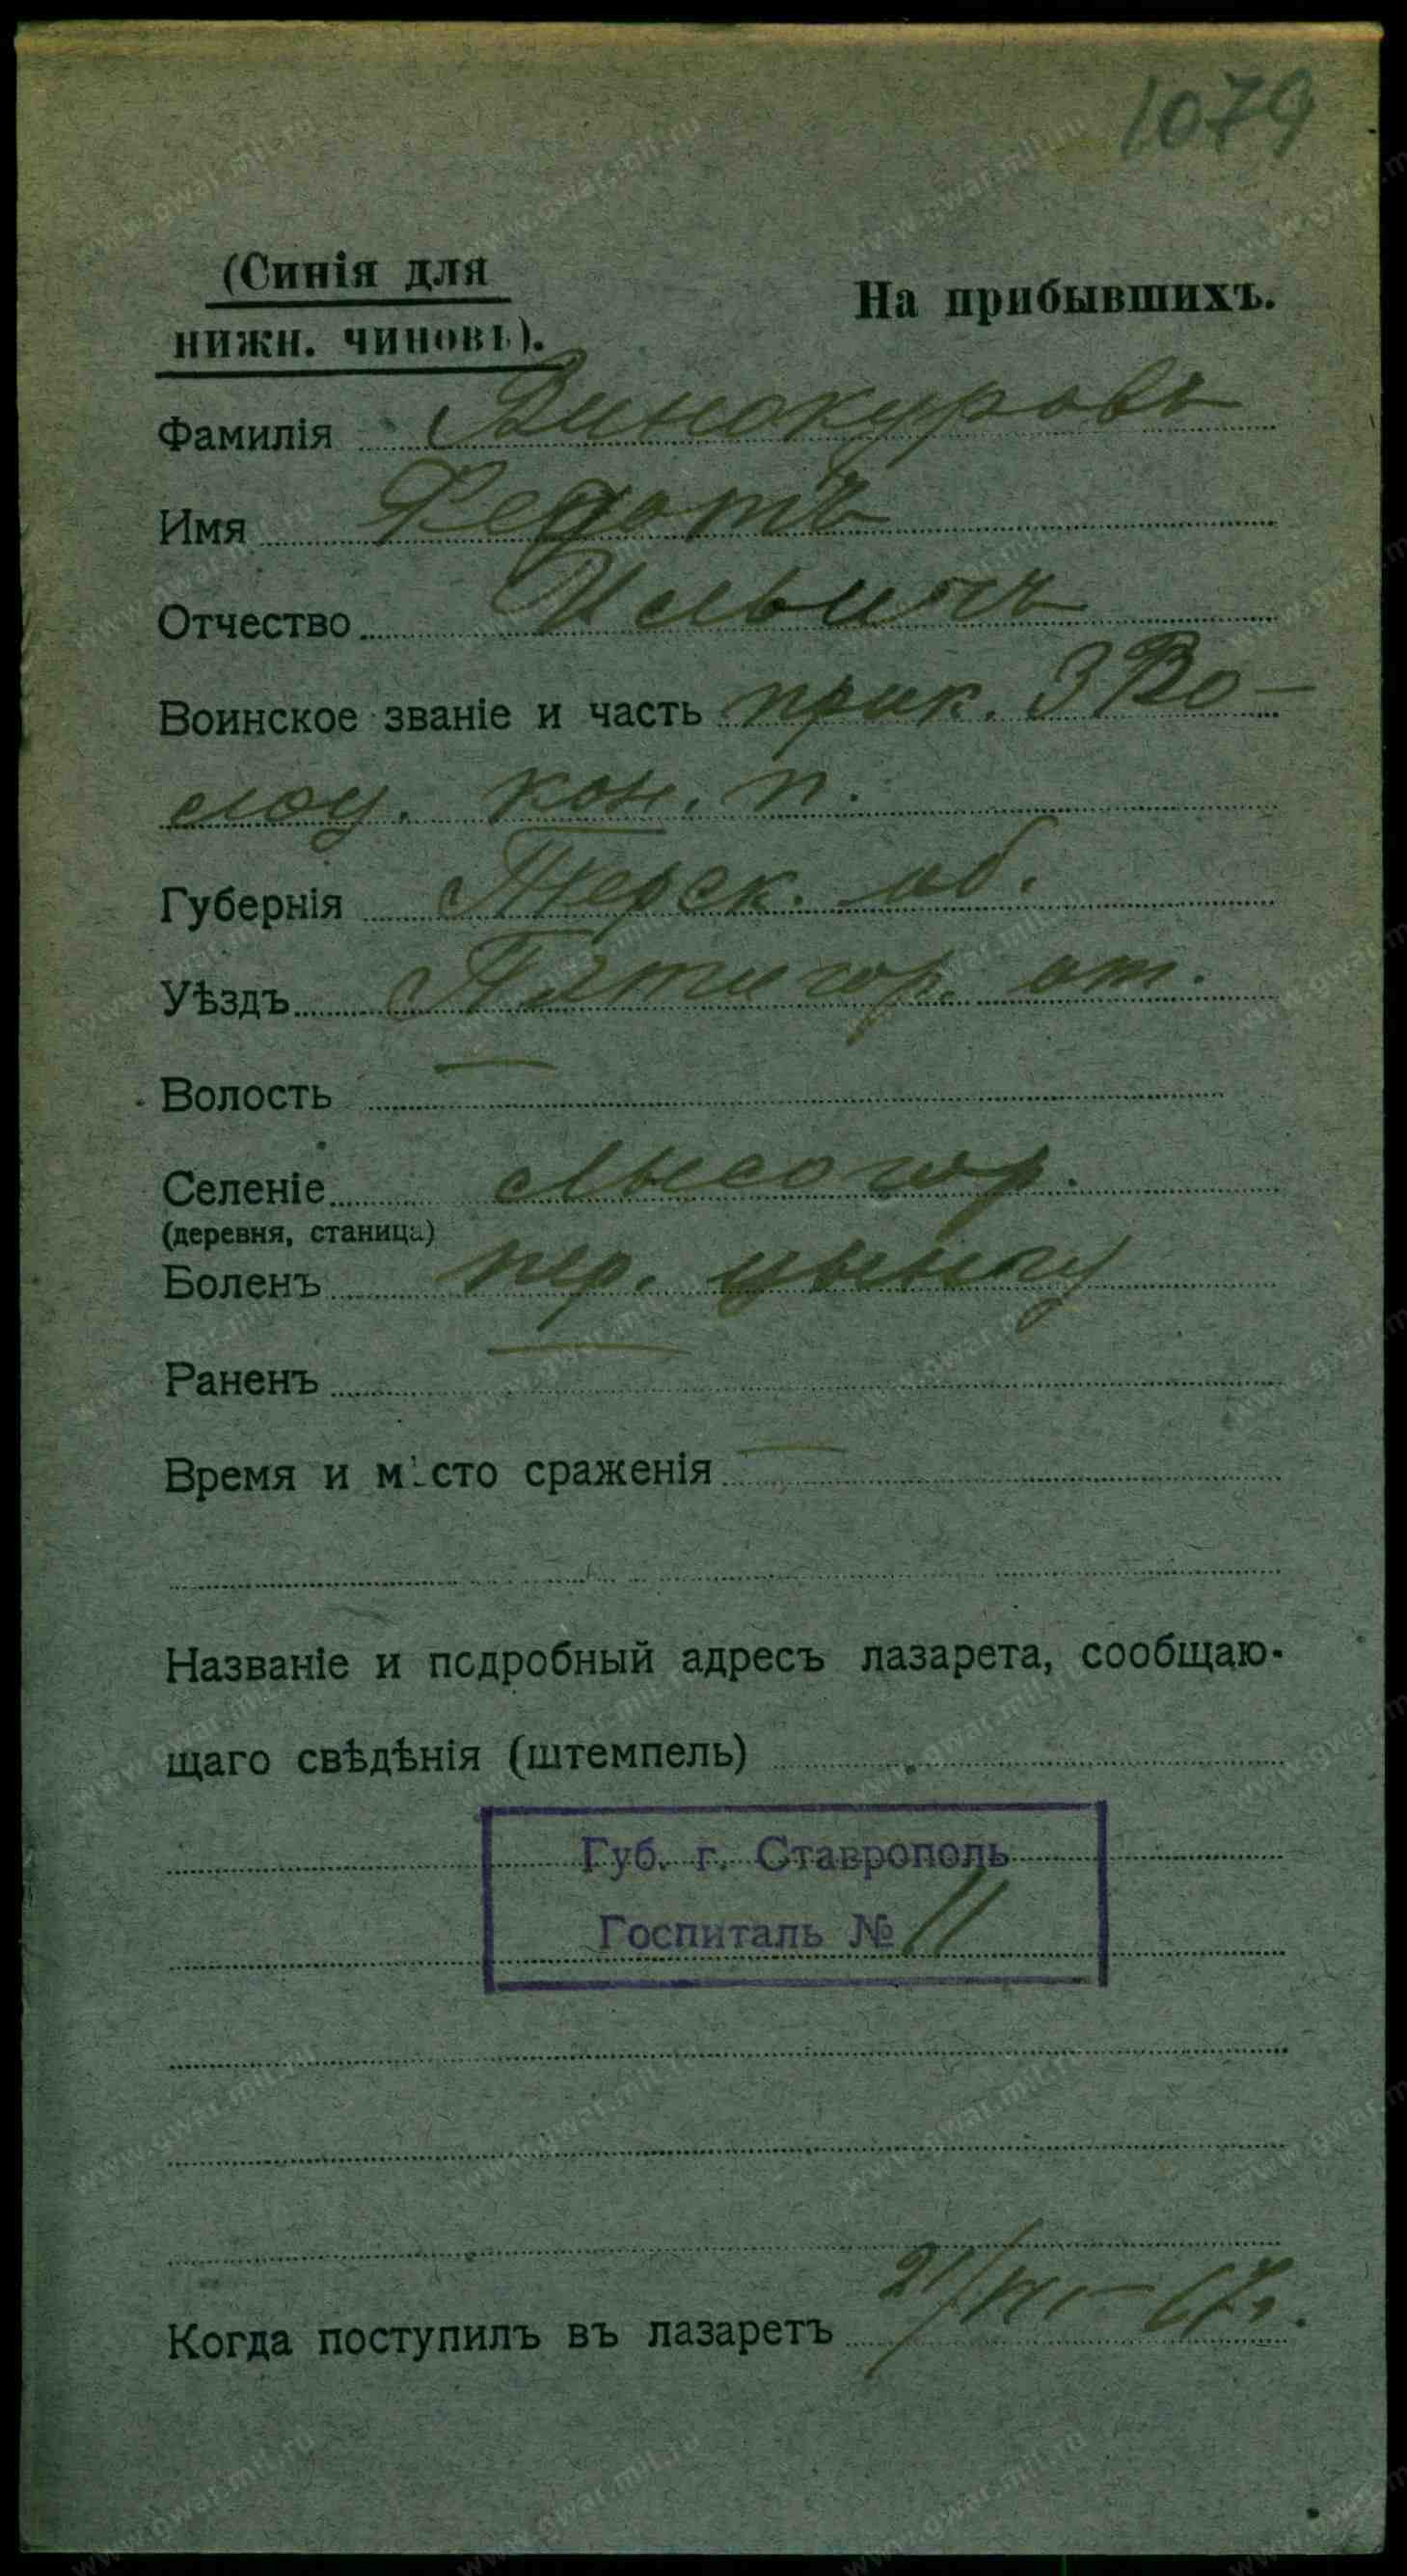 1079
(Синія для
нижн. чиновъ).
На прибывшихъ.
Фамилія Винокуровъ
Имя Федотъ
Отчество Ильичъ
Воинское званіе и часть прик. 3 Во-
лоц. кон. п.
Губернія Терск. об.
Уѣздъ Пятигор. от.
Волость —
Селеніе Лысогор.
(деревня, станица)
Боленъ пер. цынгу
Раненъ —
Время и мѣсто сраженія —
Названіе и подробный адресъ лазарета, сообщаю-
щаго свѣдѣнія (штемпель)
Губ. г. Ставрополь
Госпиталь № 11
Когда поступилъ въ лазаретъ 21/VII – 17 г.